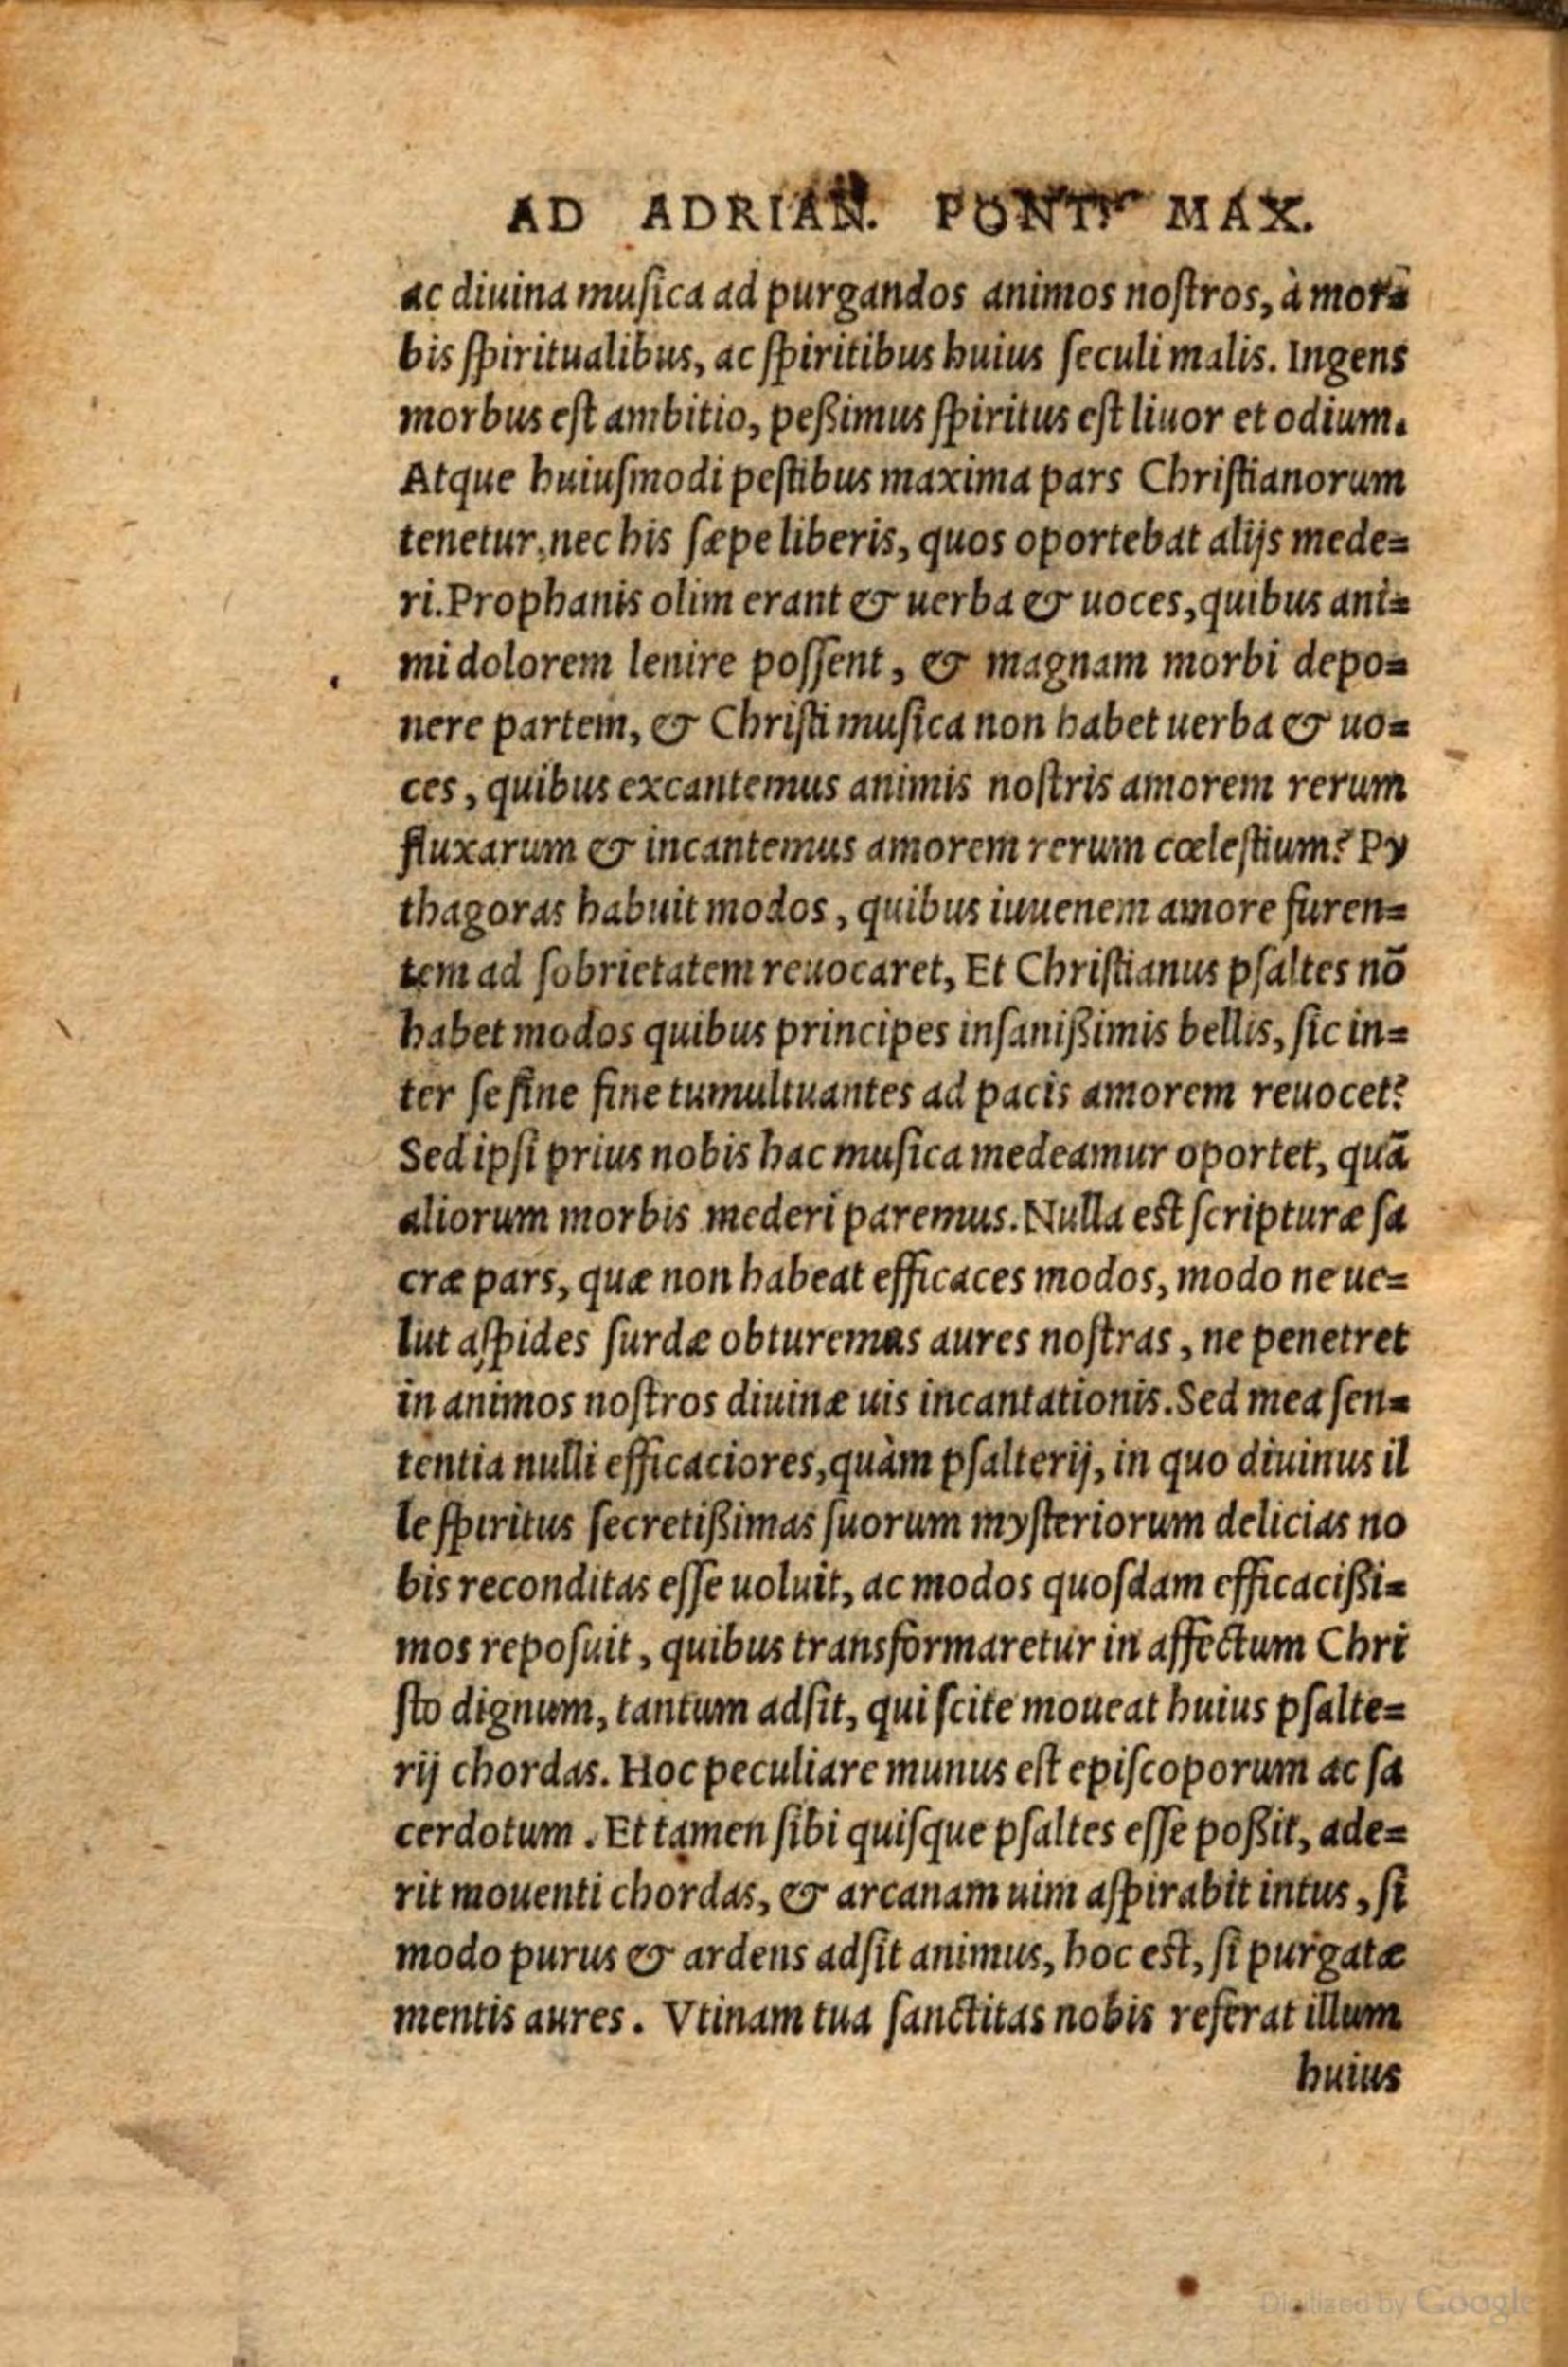 AD ADRIAN. PONT. MAX.
ac diuina musica ad purgandos animos nostros, à mor=
bis spiritualibus, ac spiritibus huius seculi malis. Ingens
morbus est ambitio, peßimus spiritus est liuor et odium.
Atque huiusmodi pestibus maxima pars Christianorum
tenetur, nec his sæpe liberis, quos oportebat alijs mede=
ri. Prophanis olim erant & uerba & uoces, quibus ani=
mi dolorem lenire possent, & magnam morbi depo=
nere partem, & Christi musica non habet uerba & uo=
ces, quibus excantemus animis nostris amorem rerum
fluxarum & incantemus amorem rerum cœlestium? Py
thagoras habuit modos, quibus iuuenem amore furen=
tem ad sobrietatem reuocaret, Et Christianus psaltes nõ
habet modos quibus principes insanißimis bellis, sic in=
ter se sine fine tumultuantes ad pacis amorem reuocet?
Sed ipsi prius nobis hac musica medeamur oportet, quã
aliorum morbis mederi paremus. Nulla est scripturæ sa
cræ pars, quæ non habeat efficaces modos, modo ne ue=
lut aspides surdæ obturemus aures nostras, ne penetret
in animos nostros diuinæ uis incantationis. Sed mea sen=
tentia nulli efficaciores, quàm psalterij, in quo diuinus il
le spiritus secretißimas suorum mysteriorum delicias no
bis reconditas esse uoluit, ac modos quosdam efficacißi=
mos reposuit, quibus transformaretur in affectum Chri
sto dignum, tantum adsit, qui scite moueat huius psalte=
rij chordas. Hoc peculiare munus est episcoporum ac sa
cerdotum. Et tamen sibi quisque psaltes esse poßit, ade=
rit mouenti chordas, & arcanam uim aspirabit intus, si
modo purus & ardens adsit animus, hoc est, si purgatæ
mentis aures. Vtinam tua sanctitas nobis referat illum
huius
Digitized by Google